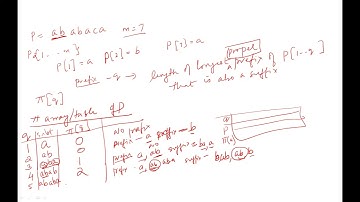 P = ab abaca m = 7
P[1 - - m]
P[1] = a P[2] = b P[3] = a
prefix - q → length of longest proper prefix of P[1..q]
that is also a suffix
π[q]
π array/table
q substr π[q]
1 a 0 No prefix
2 ab 0 prefix - a suffix - b
3 aba 1 prefix a, ab suffix - ba, a
4 abab 2 prefix - a, ab, aba suffix - bab, ab, b
5 ababa